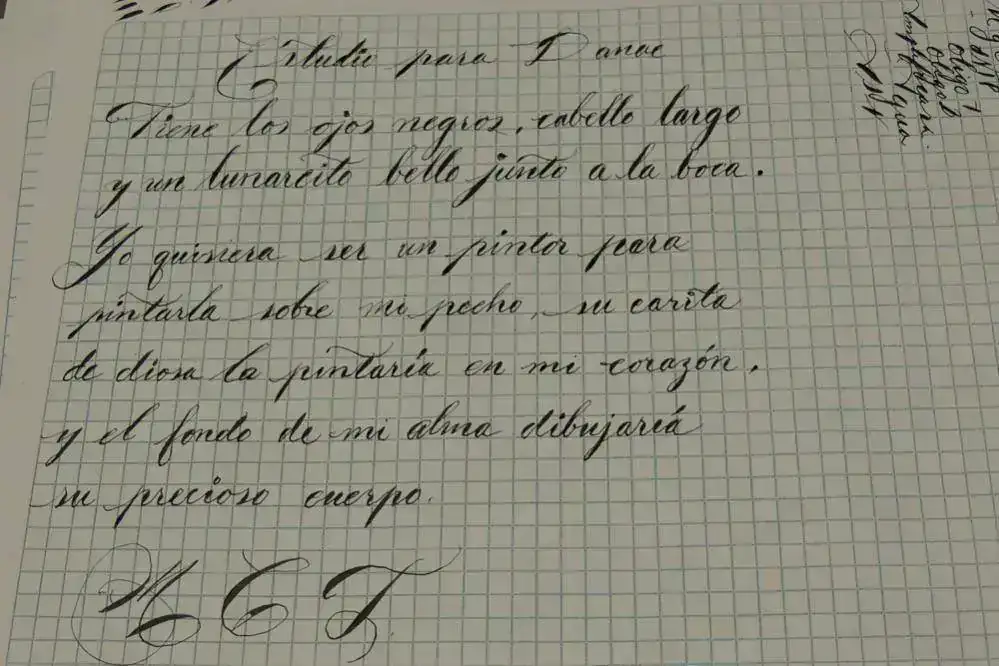 Estudio para Danae
Tiene los ojos negros, cabello largo
y un lunarcito bello junto a la boca.
Yo quisiera ser un pintor para
pintarla sobre mi pecho, su carita
de diosa la pintaría en mi corazón,
y el fondo de mi alma dibujaría
su precioso cuerpo.
M C T
Oligo +
Oligo b